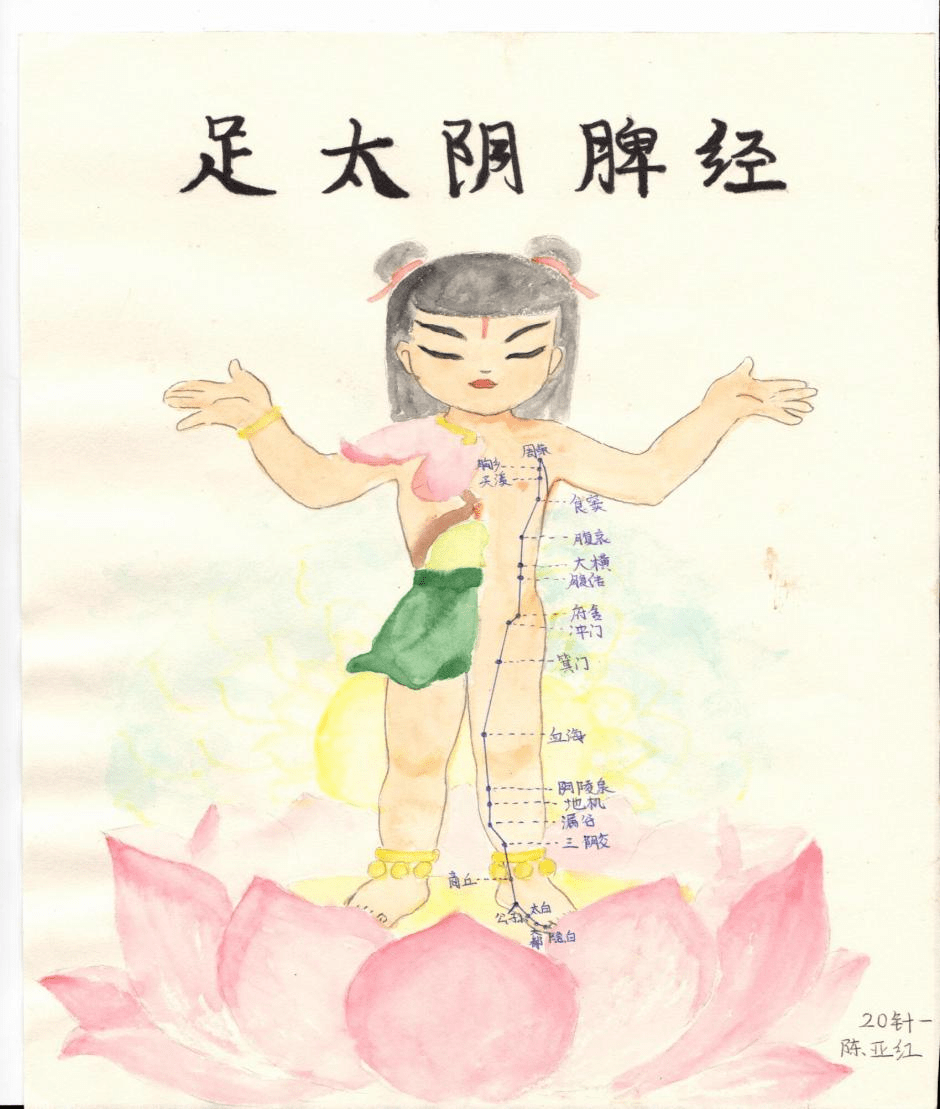 足太阴脾经
周荣
胸乡
天溪
食窦
腹哀
大横
腹结
府舍
冲门
箕门
血海
阴陵泉
地机
漏谷
三阴交
商丘
太白
公孙
大都
隐白
20针一
陈亚红